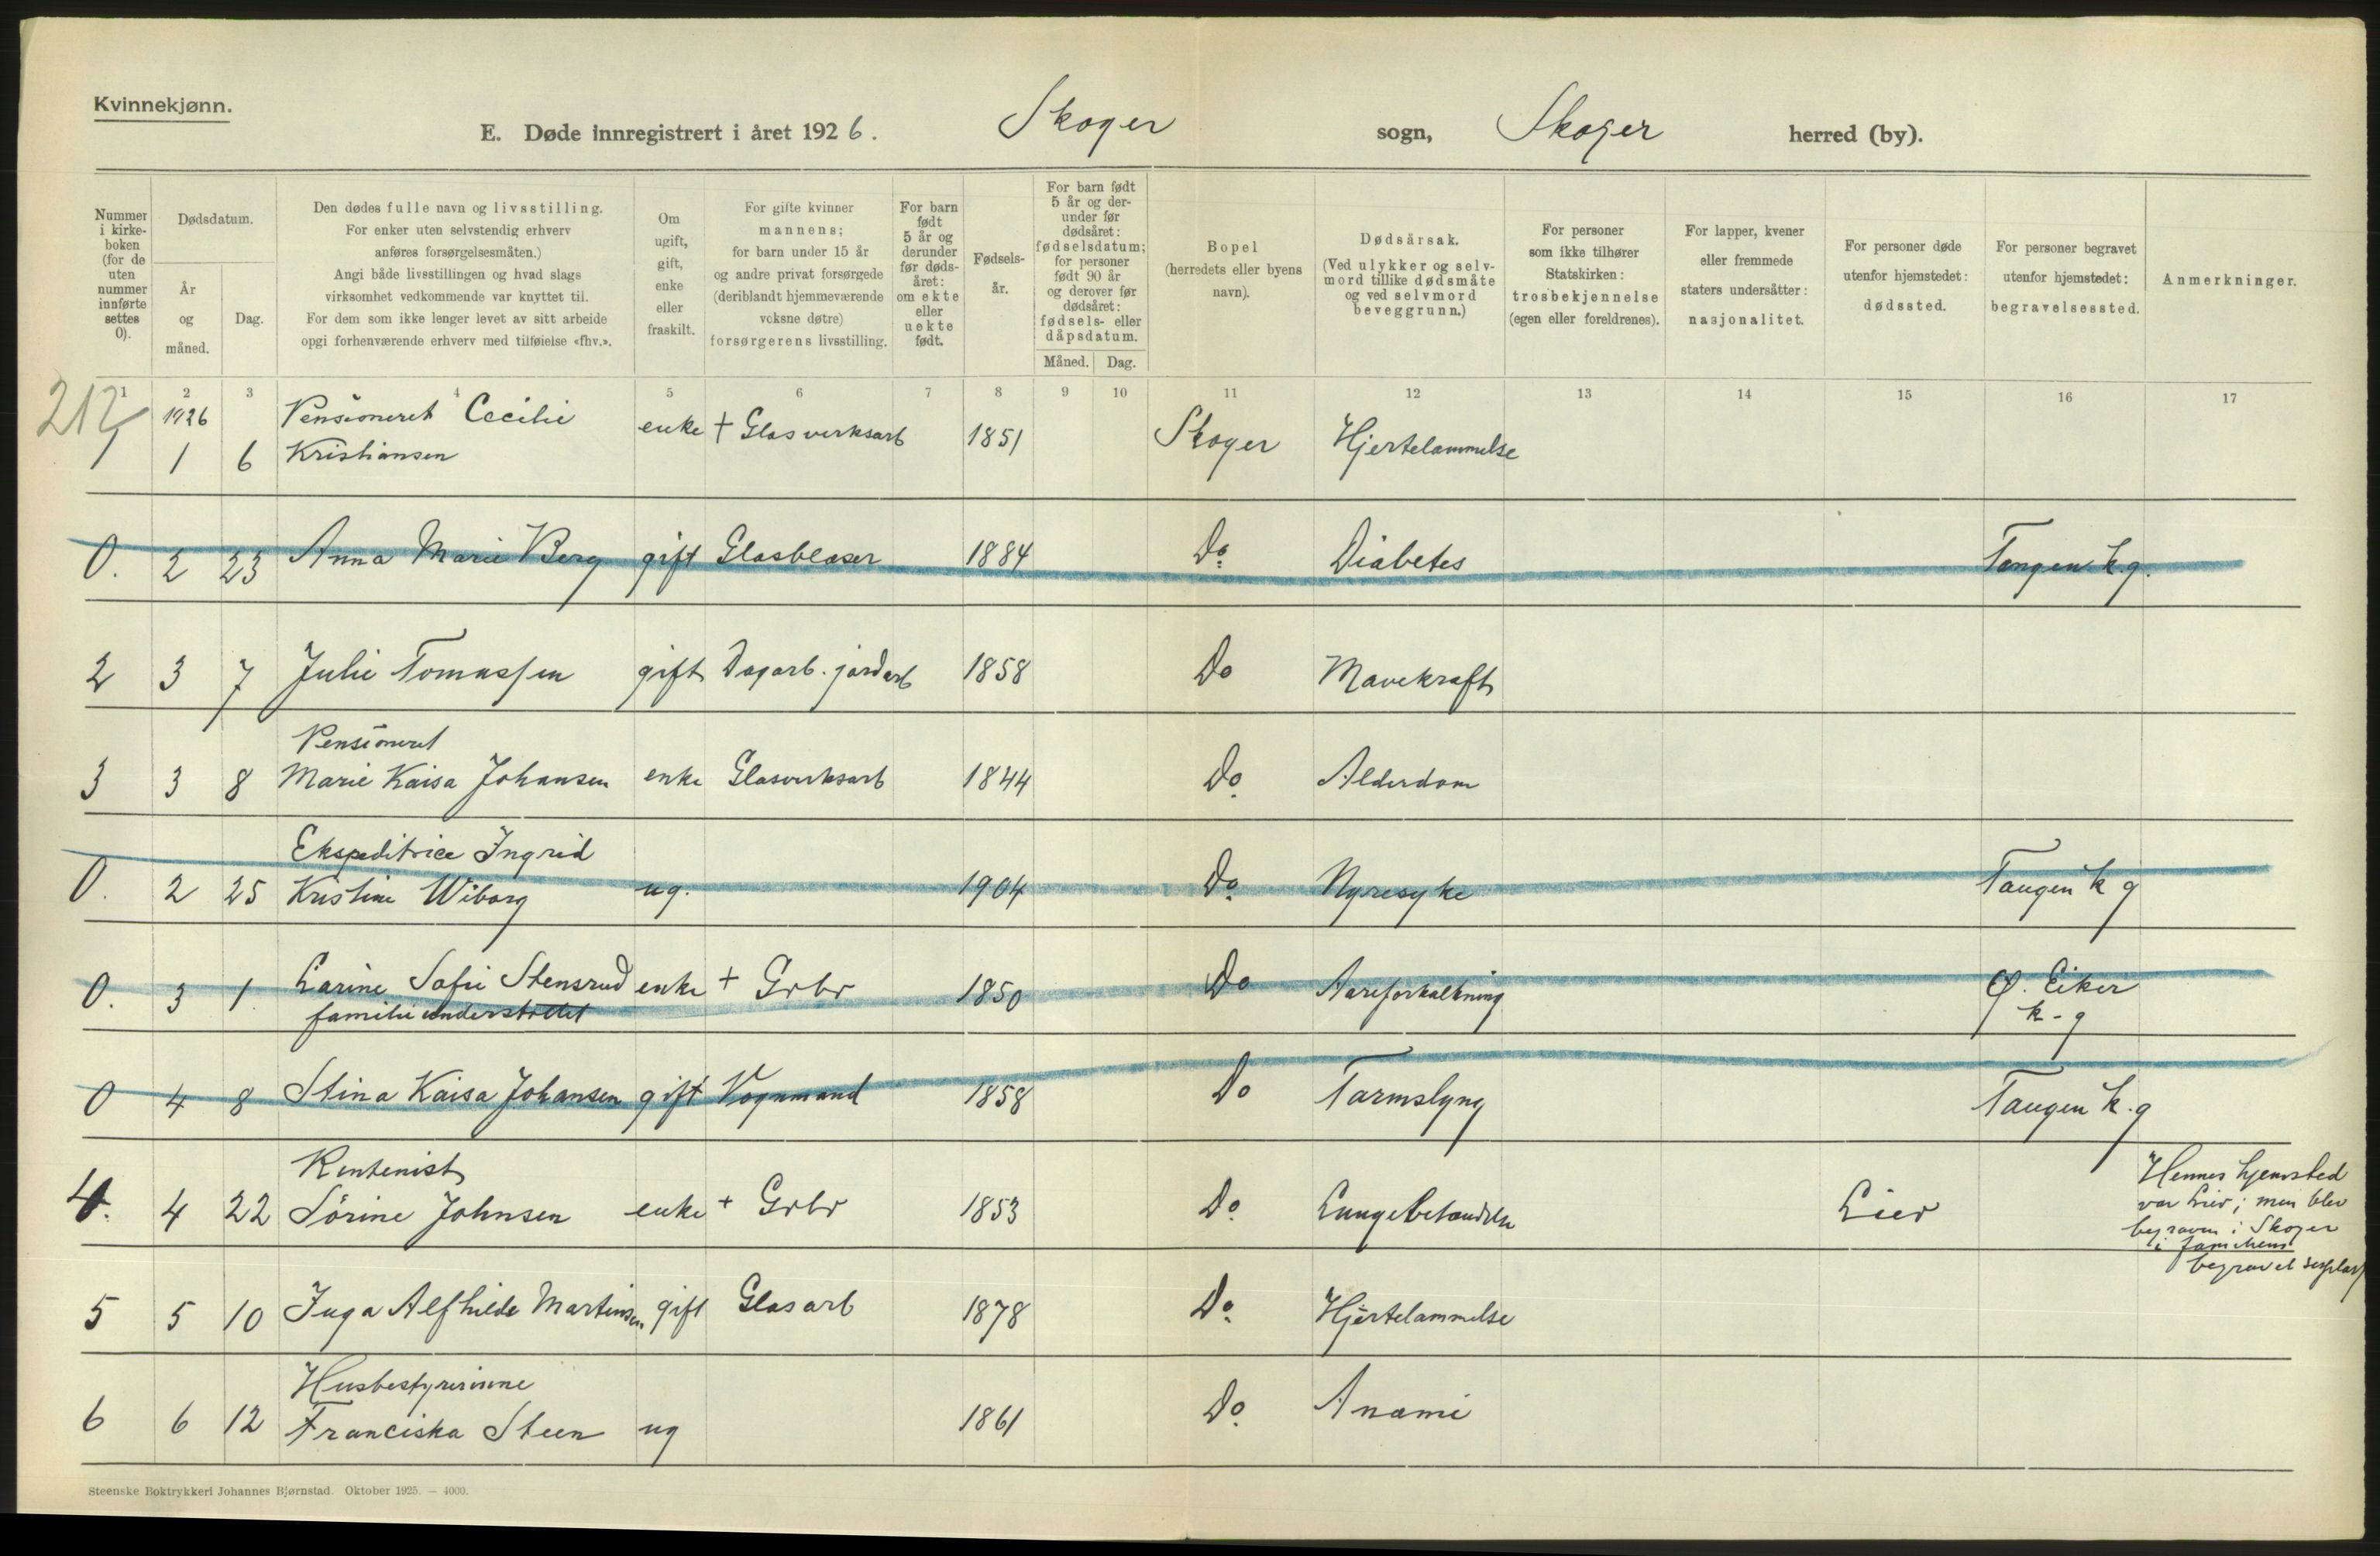 Kvinnekjønn.
E. Døde innregistrert i året 1926. Skoger sogn, Skoger herred (by).
Nummer i kirke-boken (for de uten nummer innførte settes 0).
Dødsdatum.
År og måned.
Dag.
Den dødes fulle navn og livsstilling.
For enker uten selvstendig erhverv
anføres forsørgelsesmåten.)
Angi både livsstillingen og hvad slags
virksomhet vedkommende var knyttet til.
For dem som ikke lenger levet av sitt arbeide
opgi forhenværende erhverv med tilføielse «fhv.».
Om ugift, gift, enke eller fraskilt.
For gifte kvinner
mannens;
for barn under 15 år
og andre privat forsørgede
(deriblandt hjemmeværende
voksne døtre)
forsørgerens livsstilling.
For barn født 5 år og derunder før døds-året: om ekte eller uekte født.
Fødsels-år.
For barn født 5 år og der-under før dødsåret: fødselsdatum; for personer født 90 år og derover før dødsåret: fødsels- eller dåpsdatum.
Måned. Dag.
Bopel
(herredets eller byens
navn).
Dødsårsak.
(Ved ulykker og selv-
mord tillike dødsmåte
og ved selvmord
beveggrunn.)
For personer
som ikke tilhører
Statskirken:
trosbekjennelse
(egen eller foreldrenes).
For lapper, kvener
eller fremmede
staters undersåtter:
nasjonalitet.
For personer døde
utenfor hjemstedet:
dødssted.
For personer begravet
utenfor hjemstedet:
begravelsessted.
Anmerkninger.
1 2 3 4 5 6 7 8 9 10 11 12 13 14 15 16 17
212
1926 Pensioneret Cecilie
1 1 6 Kristiansen enke + Glasverksarb 1851 Skoger Hjertelammelse
0. 2 23 Anna Marie Berg gift Glasblaser 1884 Do Diabetes Tangen k.g.
2 3 7 Julie Tomassen gift Dagarb. jordarb 1858 Do Mavekraft
Pensioneret
3 3 8 Marie Kaisa Johansen enke Glasverksarb 1844 Do Alderdom
Ekspeditrice Ingrid
0. 2 25 Kristine Wiborg ug. 1904 Do Nyresyke Tangen k g
0. 3 1. Larine Sofie Stensrud enke + Grbr 1850 Do Aareforkalkning Ø. Eiker
familie understøttet k-g
0 4 8 Stina Kaisa Johansen gift Vognmand 1858 Do Tarmslyng Tangen k.g
Rentenist
4. 4 22 Sörine Johnsen enke + Grbr 1853 Do Lungebetændelse Lier
Hennes hjemsted
var Lier; men blev
begraven i Skoger
i familiens
begravelsesplass
5 5 10 Inga Alfhilde Martinsen gift Glasarb 1878 Do Hjertelammelse
Husbestyrerinne
6 6 12 Franciska Steen ug 1861 Do Anæmi
Steenske Boktrykkeri Johannes Bjørnstad. Oktober 1925. — 4000.